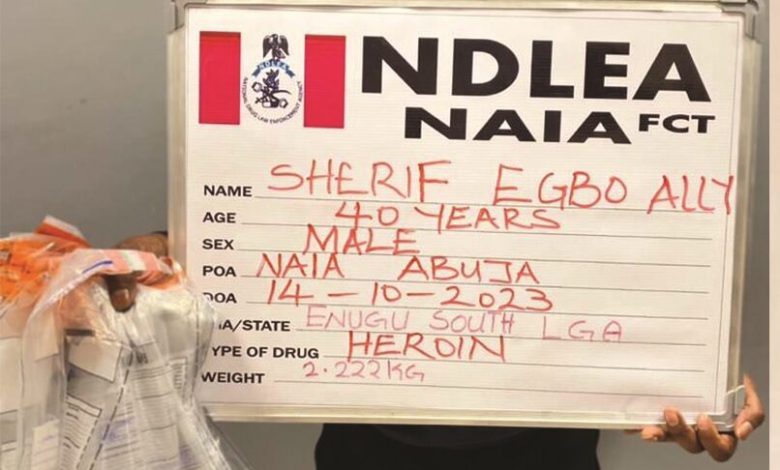 NDLEA
NATIONAL DRUG LAW ENFORCEMENT AGENCY
NDLEA
NAIA FCT
NAME SHERIF EGBO ALLY
AGE 40 YEARS
SEX MALE
POA NAIA ABUJA
DOA 14-10-2023
/STATE ENUGU SOUTH LGA
YPE OF DRUG HEROIN
WEIGHT 2.222KG